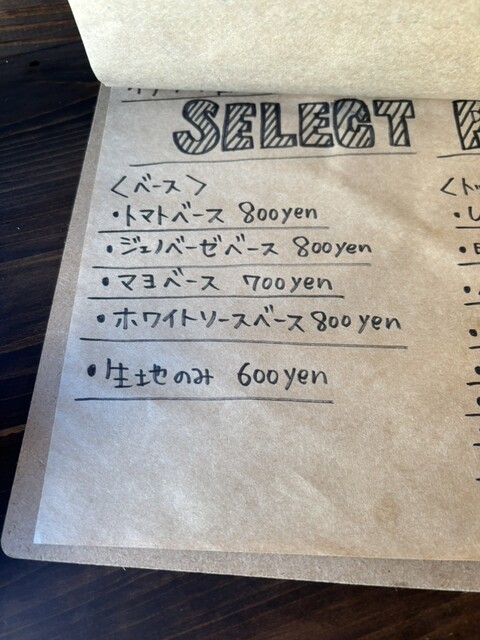 SELECT
〈ベース〉
・トマトベース 800yen
・ジェノベーゼベース 800yen
・マヨベース 700yen
・ホワイトソースベース 800yen
・生地のみ 600yen